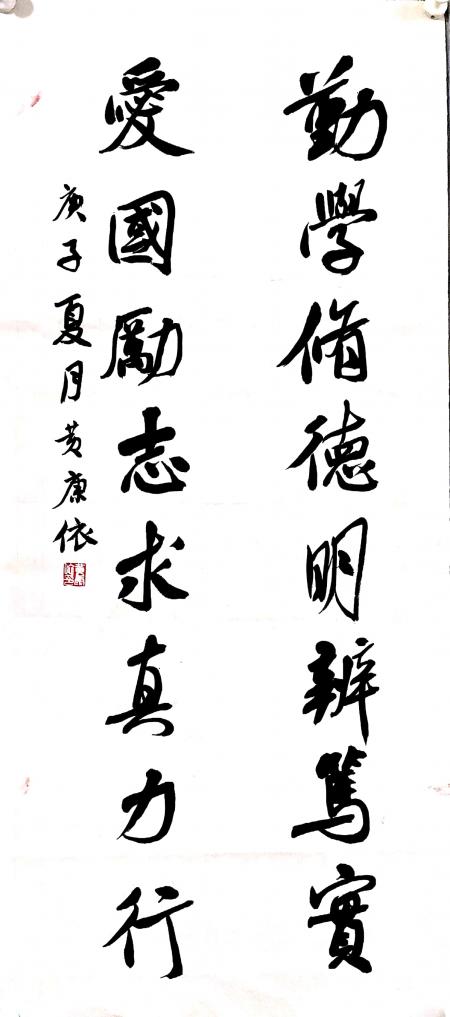 勤學脩德明辨篤實
愛國勵志求真力行
庚子夏月黄康依